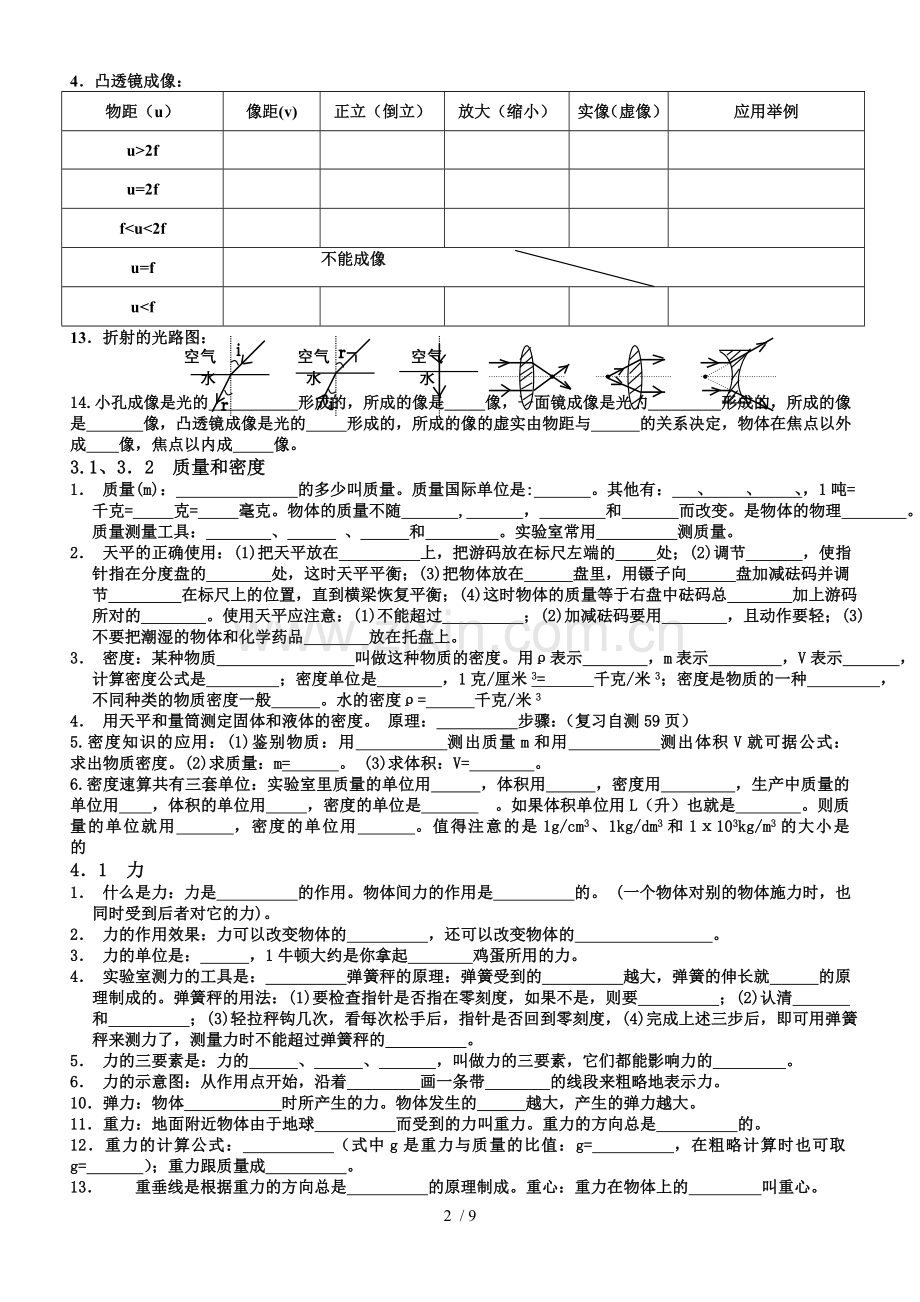 4．凸透镜成像：
物距（u） 像距(v) 正立（倒立） 放大（缩小） 实像（虚像） 应用举例
u>2f
u=2f
f<u<2f
u=f 不能成像
u<f
13．折射的光路图：
空气 i 空气 r 空气
水 r 水 i 水
14.小孔成像是光的__________形成的，所成的像是_____像，平面镜成像是光的_________形成的，所成的像
是_______像，凸透镜成像是光的_____形成的，所成的像的虚实由物距与______的关系决定，物体在焦点以外
成____像，焦点以内成_____像。
3.1、3．2 质量和密度
1． 质量(m)：_______________的多少叫质量。质量国际单位是:_______。其他有：___、____、____、，1吨=
千克=_____克=_____毫克。物体的质量不随_______,_______，________和_______而改变。是物体的物理________。
质量测量工具：________、______ 、______和_________。实验室常用__________测质量。
2． 天平的正确使用：(1)把天平放在__________上，把游码放在标尺左端的_____处；(2)调节_______，使指
针指在分度盘的________处，这时天平平衡；(3)把物体放在______盘里，用镊子向______盘加减砝码并调
节_________在标尺上的位置，直到横梁恢复平衡；(4)这时物体的质量等于右盘中砝码总________加上游码
所对的________。使用天平应注意：(1)不能超过__________；(2)加减砝码要用________，且动作要轻；(3)
不要把潮湿的物体和化学药品________放在托盘上。
3． 密度：某种物质_________________叫做这种物质的密度。用ρ表示________，m表示_________，V表示_______，
计算密度公式是_________；密度单位是________，1克/厘米3=______千克/米3；密度是物质的一种_________，
不同种类的物质密度一般______。水的密度ρ=______千克/米3
4． 用天平和量筒测定固体和液体的密度。 原理：__________步骤:（复习自测59页）
5.密度知识的应用：(1)鉴别物质：用___________测出质量m和用___________测出体积V就可据公式：
求出物质密度。(2)求质量：m=_______。 (3)求体积：V=________。
6.密度速算共有三套单位：实验室里质量的单位用______，体积用______，密度用_________，生产中质量的
单位用____，体积的单位用_____，密度的单位是_______ 。如果体积单位用L（升）也就是________。则质
量的单位就用_______，密度的单位用_______。值得注意的是1g/cm3、1kg/dm3和1ⅹ103kg/m3的大小是
的
4．1 力
1． 什么是力：力是__________的作用。物体间力的作用是__________的。 (一个物体对别的物体施力时，也
同时受到后者对它的力)。
2． 力的作用效果：力可以改变物体的__________，还可以改变物体的_________________。
3． 力的单位是：______，1牛顿大约是你拿起________鸡蛋所用的力。
4． 实验室测力的工具是：__________弹簧秤的原理：弹簧受到的__________越大，弹簧的伸长就______的原
理制成的。弹簧秤的用法：(1)要检查指针是否指在零刻度，如果不是，则要__________；(2)认清_______
和__________；(3)轻拉秤钩几次，看每次松手后，指针是否回到零刻度，(4)完成上述三步后，即可用弹簧
秤来测力了，测量力时不能超过弹簧秤的__________。
5． 力的三要素是：力的______、______、_______，叫做力的三要素，它们都能影响力的_________。
6． 力的示意图：从作用点开始，沿着_________画一条带________的线段来粗略地表示力。
10．弹力：物体____________时所产生的力。物体发生的______越大，产生的弹力越大。
11．重力：地面附近物体由于地球__________而受到的力叫重力。重力的方向总是__________的。
12．重力的计算公式：___________（式中g是重力与质量的比值：g=__________，在粗略计算时也可取
g=_______)；重力跟质量成__________。
13． 重垂线是根据重力的方向总是__________的原理制成。重心：重力在物体上的_________叫重心。
2 / 9
www.zixin.com.cn